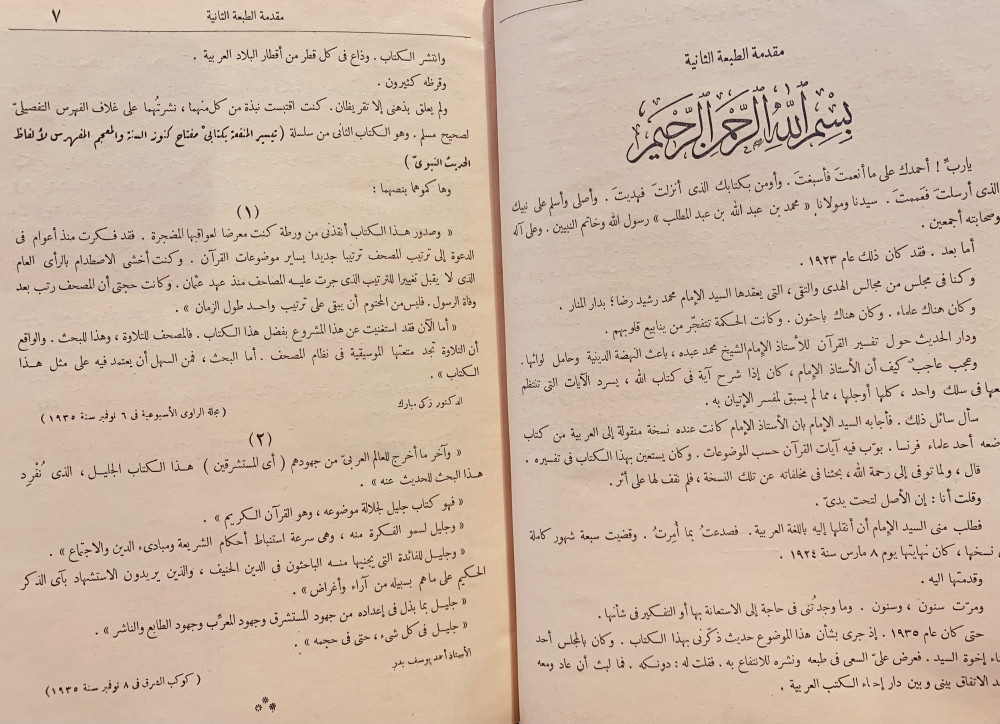 مقدمة الطبعة الثانية
بسم الله الرحمن الرحيم
يارب ! أحمدك على ما أنعمتَ فأسبغتَ . وأومن بكتابك الذى أنزلتَ فهديتَ . وأصلى وأسلم على نبيك
الذى أرسلتَ فعممتَ . سيدنا ومولانا « محمد بن عبد الله بن عبد المطلب » رسول الله وخاتم النبيين . وعلى آله
وصحابته أجمعين .
أما بعد . فقد كان ذلك عام ١٩٢٣ .
وكنا فى مجلس من مجالس الهدى والتقى ، التى يعقدها السيد الإمام محمد رشيد رضا ؛ بدار المنار .
وكان هناك علماء . وكان هناك باحثون . وكانت الحكمة تتفجّر من ينابيع قلوبهم .
ودار الحديث حول تفسير القرآن للأستاذ الإمام الشيخ محمد عبده ، باعث النهضة الدينية وحامل لوائها .
وعجب عاجب كيف أن الأستاذ الإمام ، كان إذا شرح آية فى كتاب الله ، يسرد الآيات التى تنتظم
معها فى سلك واحد ، كلها أوجلها ، مما لم يسبق لمفسر الإتيان به .
سأل سائل ذلك . فأجابه السيد الإمام بان الأستاذ الإمام كانت عنده نسخة منقولة إلى العربية من كتاب
وضعه أحد علماء فرنسا . بوّب فيه آيات القرآن حسب الموضوعات . وكان يستعين بهذا الكتاب فى تفسيره .
قال ، ولما توفى إلى رحمة الله ، بحثنا فى مخلفاته عن تلك النسخة ، فلم نقف لها على أثر .
وقلت أنا : إن الأصل لتحت يدىّ .
فطلب منى السيد الإمام أن أنقلها إليه باللغة العربية . فصدعتُ بما أُمِرتُ . وقضيت سبعة شهور كاملة
نسخها ، كان نهايتها يوم ٨ مارس سنة ١٩٢٤ .
وقدمتها اليه .
ومرّت سنون ، وسنون . وما وجدتُنى فى حاجة إلى الاستعانة بها أو التفكير فى شأنها .
حتى كان عام ١٩٣٥ . إذ جرى بشأن هذا الموضوع حديث ذكّرنى بهذا الكتاب . وكان بالمجلس أحد
إخوة السيد . فعرض علىّ السعى فى طبعه ونشره للانتفاع به . فقلت له : دونكه . فما لبث أن عاد ومعه
الاتفاق بينى وبين دار إحياء الكتب العربية .
مقدمة الطبعة الثانية ٧
وانتشر الكتاب . وذاع فى كل قطر من أقطار البلاد العربية .
وقرظه كثيرون .
ولم يعلق بذهنى إلا تقريظان . كنت اقتبست نبذة من كل منهما ، نشرتُهما على غلاف الفهرس التفصيلىّ
لصحيح مسلم . وهو الكتاب الثانى من سلسلة ( تيسير المنفعة بكتابىْ مفتاح كنوز السنة والمعجم المفهرس لألفاظ
الحديث النبوىّ )
وها كموهما بنصهما :
(١)
« وصدور هذا الكتاب أنقذنى من ورطة كنت معرضا لعواقبها المضجرة . فقد فكرت منذ أعوام فى
الدعوة إلى ترتيب المصحف ترتيبا جديدا يساير موضوعات القرآن . وكنت أخشى الاصطدام بالرأى العام
الذى لا يقبل تغييرا للترتيب الذى جرت عليه المصاحف منذ عهد عثمان . وكانت حجتى أن المصحف رتب بعد
وفاة الرسول . فليس من المحتوم أن يبقى على ترتيب واحد طول الزمان » .
« أما الآن فقد استغنيت عن هذا المشروع بفضل هذا الكتاب . فالمصحف للتلاوة ، وهذا للبحث . والواقع
أن التلاوة تجد متعتها الموسيقية فى نظام المصحف . أما البحث ، فمن السهل أن يعتمد فيه على مثل هذا
الكتاب » .
الدكتور زكى مبارك
( مجلة الراوى الأسبوعية فى ٦ نوفمبر سنة ١٩٣٥ )
(٢)
« وآخر ما أخرج للعالم العربىّ من جهودهم ( أى المستشرقين ) هذا الكتاب الجليل ، الذى نُفْرِد
هذا البحث للحديث عنه » .
« فهو كتاب جليل لجلالة موضوعه ، وهو القرآن الكريم » .
« وجليل لسمو الفكرة منه ، وهى سرعة استنباط أحكام الشريعة ومبادىء الدين والاجتماع » .
« وجليل للفائدة التى يجنيها منه الباحثون فى الدين الحنيف ، والذين يريدون الاستشهاد بآى الذكر
الحكيم على ما هم بسبيله من آراء وأغراض » .
« جليل بما بذل فى إعداده من جهود المستشرق وجهود المعرِّب وجهود الطابع والناشر » .
« جليل فى كل شىء ، حتى فى حجمه » .
الأستاذ أحمد يوسف بدر
( كوكب الشرق فى ٨ نوفمبر سنة ١٩٣٥ )